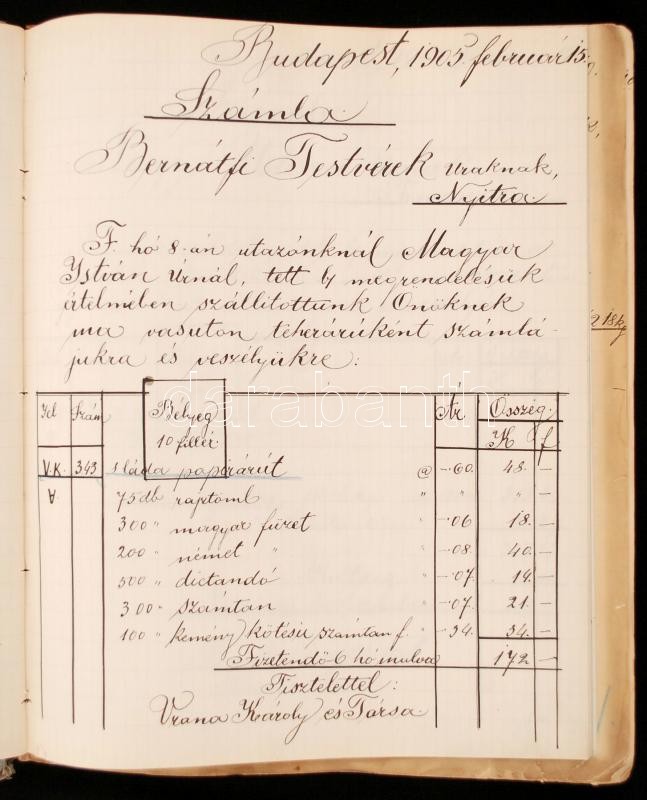 Budapest, 1905. február 15.
Számla
Bernátfi Testvérek uraknak,
Nyitra.
F. hó 8-án utazónknál Magyar
István Úrnál, tett b. megrendelésük
értelmében szállitottunk Önöknek
ma vasuton teheráruként számlá-
jukra és veszélyükre:
Jel Szám Bélyeg Ár Összeg
10 fillér K f
V.K. 343 1 láda papirárút @ -.60. 48. —
A. 75 db " " " —
300 " magyar füzet " -.06 18. —
200 " német " " -.08. 40. —
500 " dictandó " -.07. 14. —
300 " számtan " -.07. 21. —
100 " kemény kötésü számtan f. " -.34. 34. —
Fizetendő 6 hó mulva 172 —
Tisztelettel:
Vrana Károly és Társa.
12 18 kg
darabanth